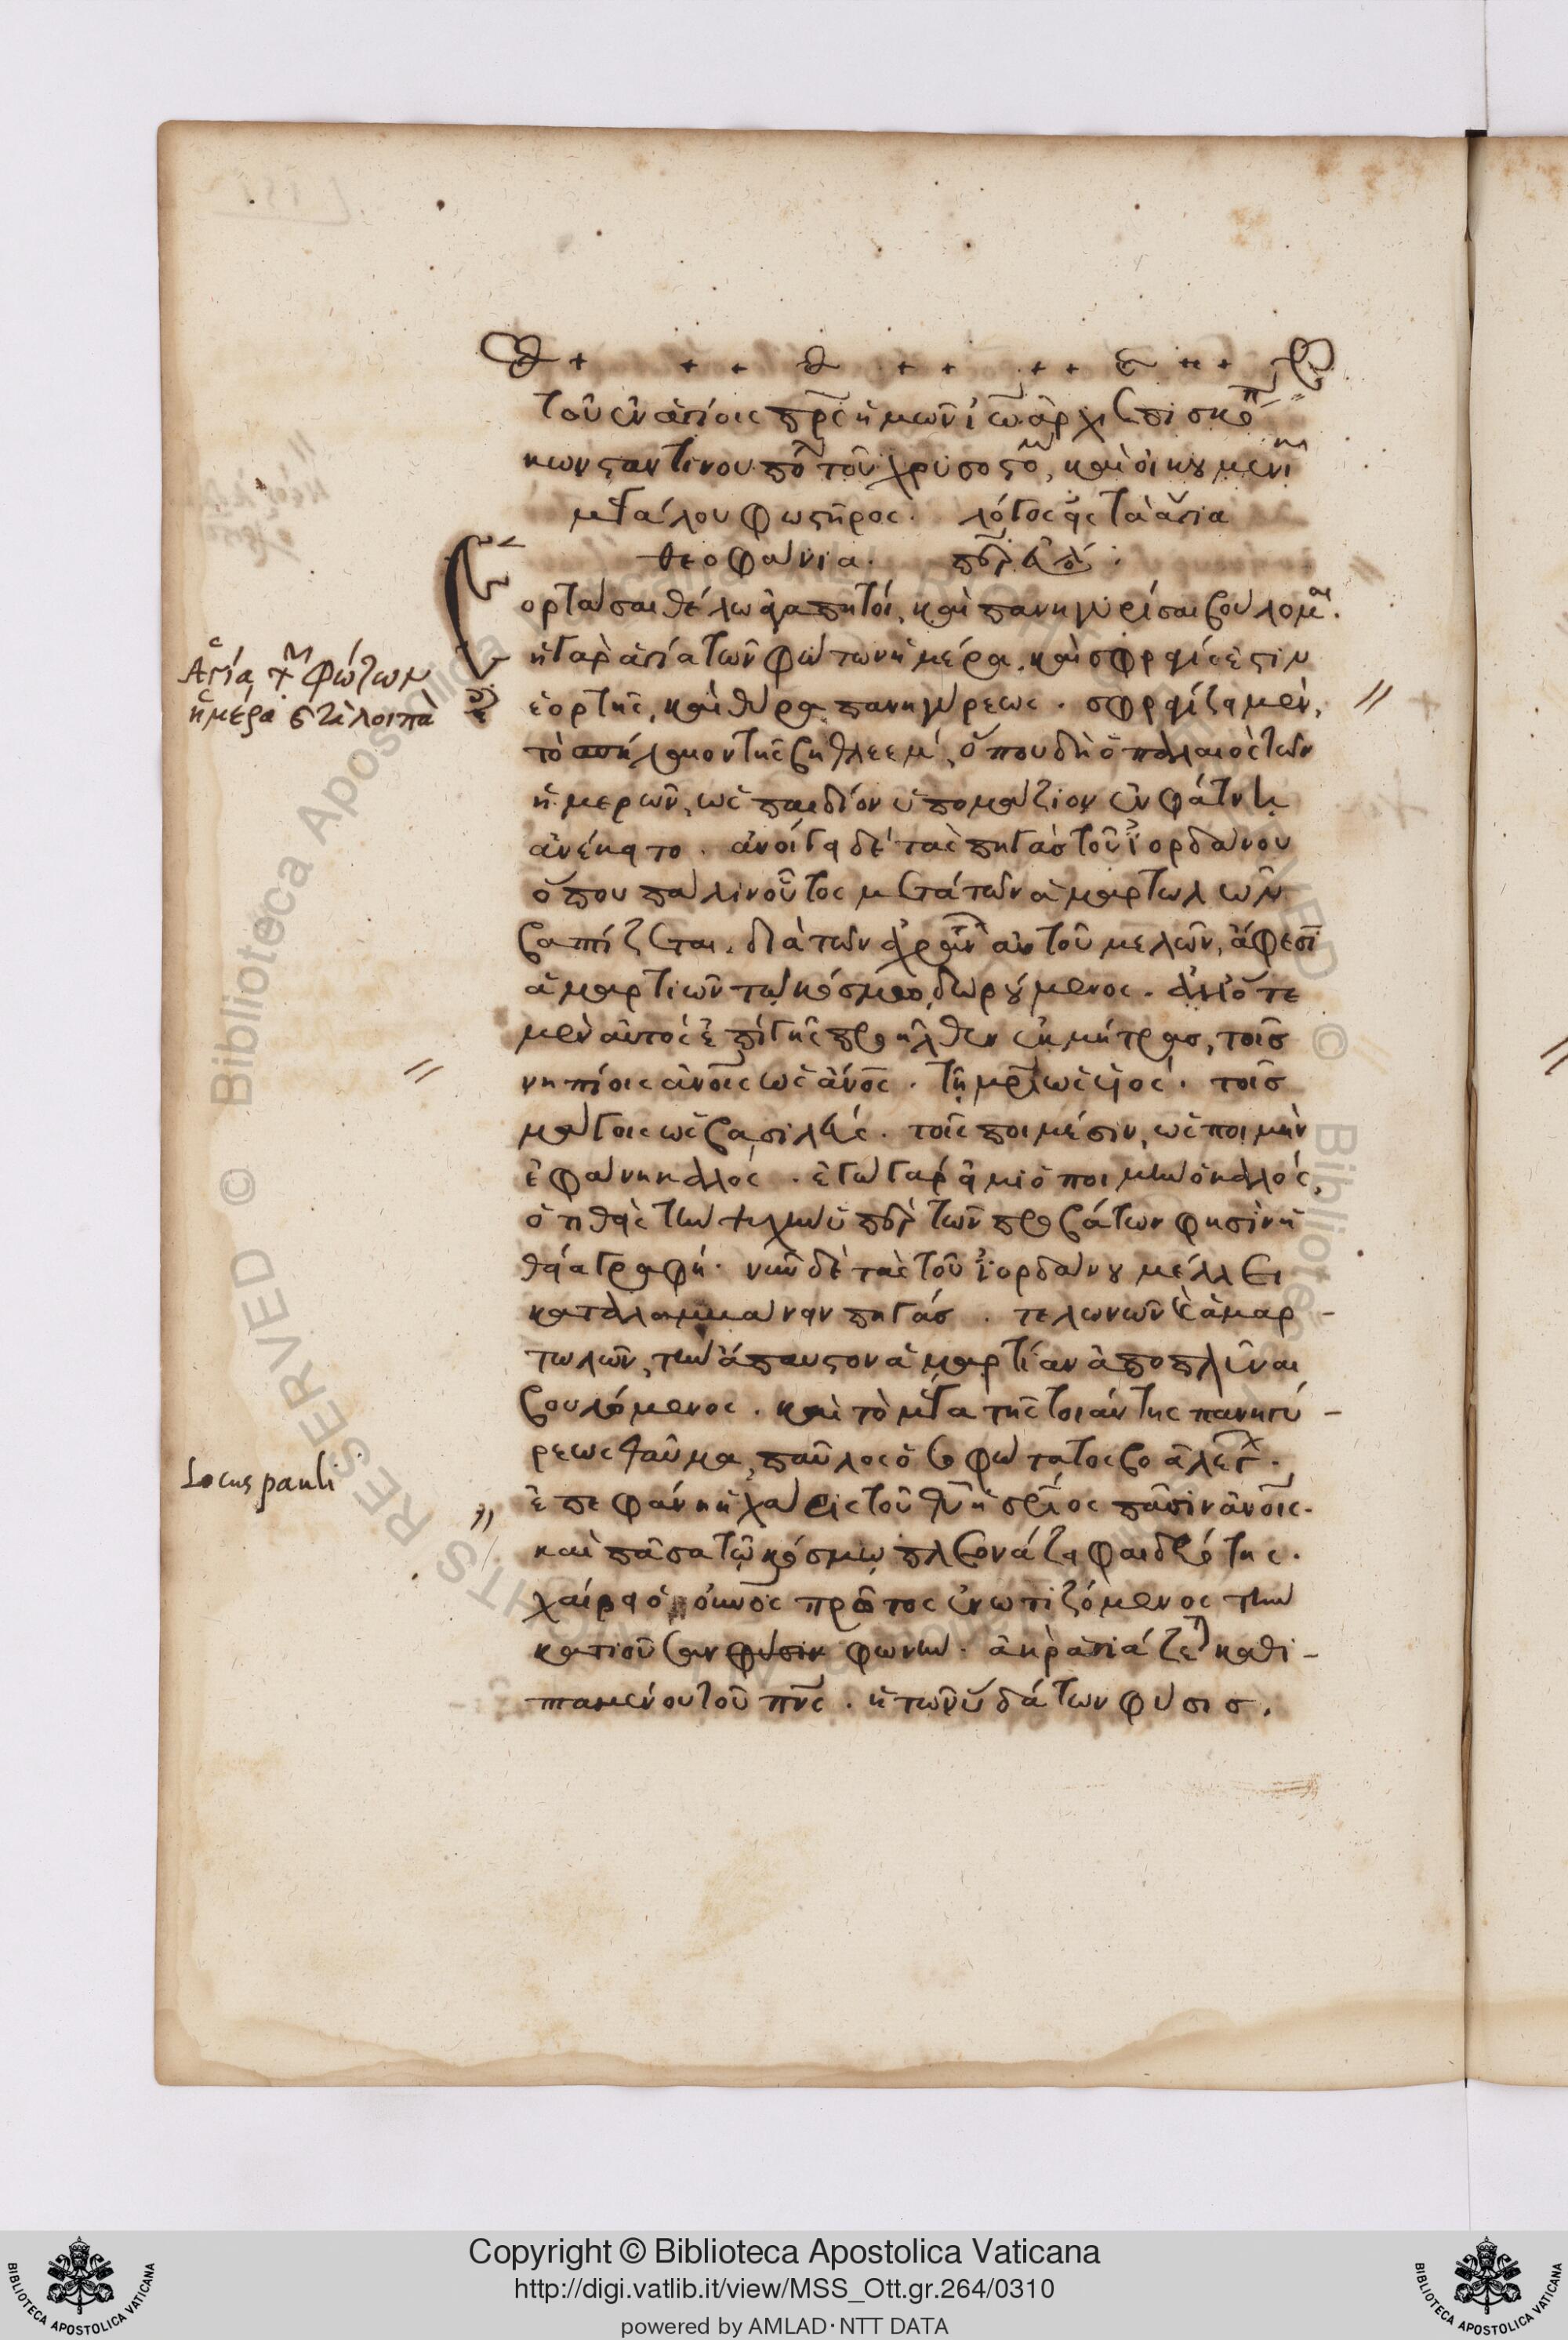 τοῦ ἐν ἁγίοις πρς ἡμῶν ἰω ἀρχιεπισκο
κωνσταντινουπο τοῦ χρυσοστο, καὶ οἰκουμενι
μεγάλου φωστῆρος. λόγος εἰς τὰ ἅγια
θεοφάνια.
Ἑορτάσαι θέλω ἀγαπητοὶ, καὶ πανηγυρίσαι βουλομαι.
ἡ γὰρ ἁγία τῶν φώτων ἡμέρα, καὶ σφραγίς ἐστιν
ἑορτῆς, καὶ θύρα πανηγύρεως. σφραγίζει μὲν,
τὸ σπήλαιον τῆς βηθλεὲμ, ὅπου δὴ ὁ παλαιὸς τῶν
ἡμερῶν, ὡς παιδίον ὑπομάζιον ἐν φάτνῃ
ἀνέκειτο. ἀνοίγει δὲ τὰς πηγὰς τοῦ ἰορδάνου
ὅπου πάλιν οὗτος μετὰ τῶν ἁμαρτωλῶν
βαπτίζεται. διὰ τῶν ἀχράν αὐτοῦ μελῶν, ἄφεσι
ἁμαρτιῶν τῷ κόσμῳ δωρούμενος. ἀλλ' ὅτε
μὲν αὐτὸς ἐπὶ γῆς προῆλθεν ἐκ μήτρας, τοῖς
νηπίοις ἀνοις ὡς ἄνος. τῇ μρι ὡς υἱός. τοῖς
μάγοις ὡς βασιλεύς. τοῖς ποιμέσιν, ὡς ποιμὴν
ἐφάνη καλός. ἐγὼ γάρ εἰμι ὁ ποιμὴν ὁ καλός,
ὁ τιθεὶς τὴν ψυχὴν ὑπὲρ τῶν προβάτων φησὶν ἡ
θεία γραφή. νῦν δὲ τὰς τοῦ ἰορδάνου μέλλει
καταλαμβάνειν πηγάς. τελωνῶν καὶ ἁμαρ-
τωλῶν, τὴν ἄπαυστον ἁμαρτίαν ἀποπλῦναι
βουλόμενος. καὶ τὸ μέγα τῆς τοιαύτης πανηγύ-
ρεως θαῦμα, παῦλος ὁ σοφώτατος βοᾶ λέγ.
ἐπεφάνη ἡ χάρις τοῦ θυ ἡ σριος πᾶσιν ἀνοις.
καὶ πᾶσα τῷ κόσμῳ πλεονάζει φαιδρότης.
χαίρει ὁ οὐνος πρῶτος ἐνωτιζόμενος τὴν
κατιοῦσαν φύσιν φωνήν. ἀὴρ ἁγιάζε καθι-
πταμένου τοῦ πνς. ἡ τῶν ὑδάτων φύσις.
Ἁγία τῶν φώτων
ἡμέρα καὶ τὰ λοιπὰ
Locus pauli
Copyright © Biblioteca Apostolica Vaticana
http://digi.vatlib.it/view/MSS_Ott.gr.264/0310
powered by AMLAD·NTT DATA
BIBLIOTECA APOSTOLICA VATICANA
BIBLIOTECA APOSTOLICA VATICANA